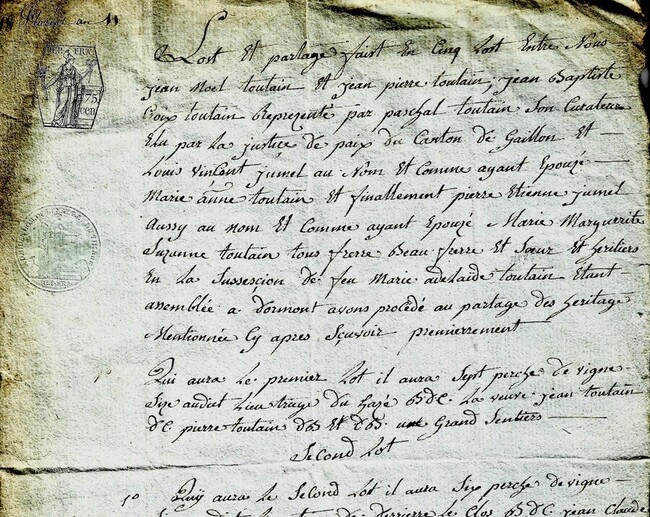 an 11
REP. FRA.
75
cen
Lost Et partage faist En Cinq Lost Entre Nous
jean Noel toutain Et jean pierre toutain, jean Baptiste
Croix toutain Represente par paschal toutain Son Curateur
Elu par La justice de paix du Canton de Gaillon Et
Louis Vincent jumel au Nom Et Comme ayant Epouzé
Marie anne toutain Et finallement pierre Etienne jumel
Aussy au nom Et Comme ayant Epouzé Marie Marguerite
Suzanne toutain tous frerre Beau frerre Et Sœur Et heritiers
En La Sussesçion de feu Marie adelaide toutain Etant
assemblée a dormont avons procédé au partage des heritage
Mentionnée Cy apres Sçuvoir prennierrement
Qui aura Le premier Lot il aura Sept perche de vigne
Size audit Lieu du hazé La veuve jean toutain
d.C. pierre toutain Et Grand Sentiers
Second Lot
1o Quy aura Le Second Lot il aura Six perche de vigne
derrierre Le Clos jean Claude